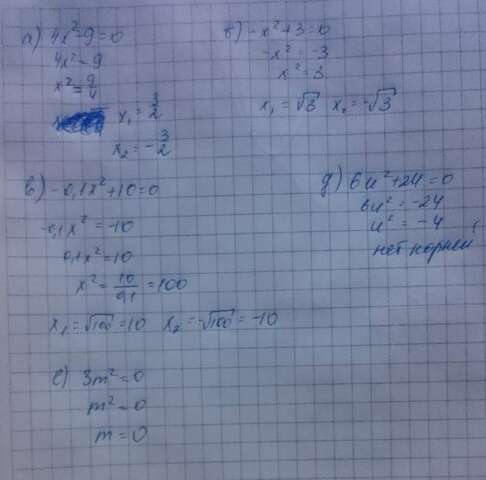 а) 4x²-9=0
4x²=9
x²=9/4
x₁=3/2
x₂=-3/2
б) -x²+3=0
-x²=-3
x²=3
x₁=√3 x₂=-√3
в) -0,1x²+10=0
-0,1x²=-10
0,1x²=10
x²=10/0,1=100
x₁=√100=10 x₂=-√100=-10
д) 6u²+24=0
6u²=-24
u²=-4
нет корней
е) 3m²=0
m²=0
m=0